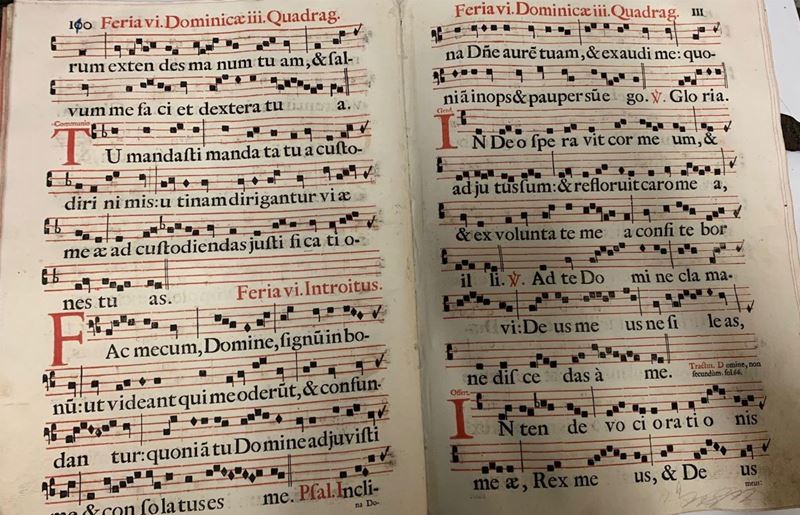 100 Feria vi. Dominicæ iii. Quadrag.
rum exten des ma num tu am, & sal-
vum me fa ci et dextera tu a.
Communio
TU mandasti manda ta tu a custo-
diri ni mis: u tinam dirigantur vi æ
me æ ad custodiendas justi fi ca ti o-
nes tu as. Feria vi. Introitus.
FAc mecum, Domine, signũ in bo-
nũ: ut videant qui me oderũt, & confun-
dan tur: quoniã tu Domine adjuvisti
me & con so latus es me. Psal. Incli-
na Do-
Feria vi. Dominicæ iii. Quadrag. III
na Dñe aurẽ tuam, & exaudi me: quo-
niã inops & pauper sũ e go. ℣. Glo ria.
Grad.
IN De o spe ra vit cor me um, &
ad ju tus sum: & refloruit caro me a,
& ex volunta te me a confi te bor
il li. ℣. Ad te Do mi ne cla ma-
vi: De us me us ne si le as,
ne dis ce das à me. Tractus. Domine, non
secundùm. fol. 66.
Offert.
IN ten de vo ci o ra ti o nis
me æ, Rex me us, & De us
meus: